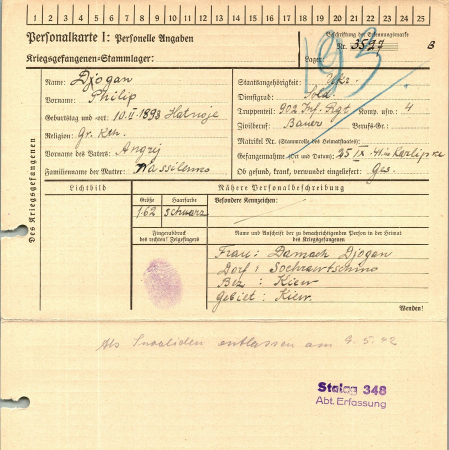 1 2 3 4 5 6 7 8 9 10 11 12 13 14 15 16 17 18 19 20 21 22 23 24 25
Personalkarte I: Personelle Angaben
Beschriftung der Erkennungsmarke
Nr. 3597 B
Kriegsgefangenen-Stammlager:
Lager:
193
Des Kriegsgefangenen
Name: Djogan
Vorname: Philip
Geburtstag und -ort: 10.II.1893 Hatnoje
Religion: Gr. Kth.
Vorname des Vaters: Angrej
Familienname der Mutter: Wassilenno
Staatsangehörigkeit: Ukr.
Dienstgrad: Sold.
Truppenteil: 902 Inf. Rgt Komp. usw.: 4
Zivilberuf: Bauer Berufs-Gr.:
Matrikel Nr. (Stammrolle des Heimatstaates):
Gefangennahme (Ort und Datum): 25 IX. 41 in Karlipke
Ob gesund, krank, verwundet eingeliefert: Ges.
Lichtbild
Nähere Personalbeschreibung
Größe Haarfarbe
1.62 schwarz
Besondere Kennzeichen:
Fingerabdruck
des rechten! Zeigefingers
Name und Anschrift der zu benachrichtigenden Person in der Heimat
des Kriegsgefangenen
Frau: Damach Djogan
Dorf:
Bez: Kiew
Gebiet: Kiew.
Wenden!
Als Invaliden entlassen am 9.5.42
Stalag 348
Abt. Erfassung